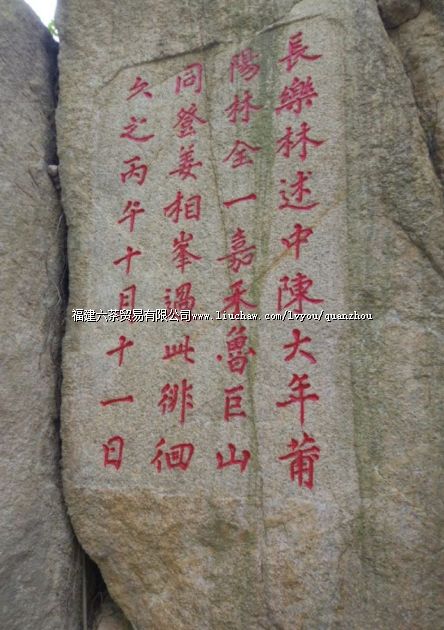 長樂林述中陳大年莆
陽林全一嘉禾魯巨山
同登姜相峯過此徘徊
久之丙午十月十一日
福建六茶贸易有限公司www.liuchaw.com/lvyou/quanzhou